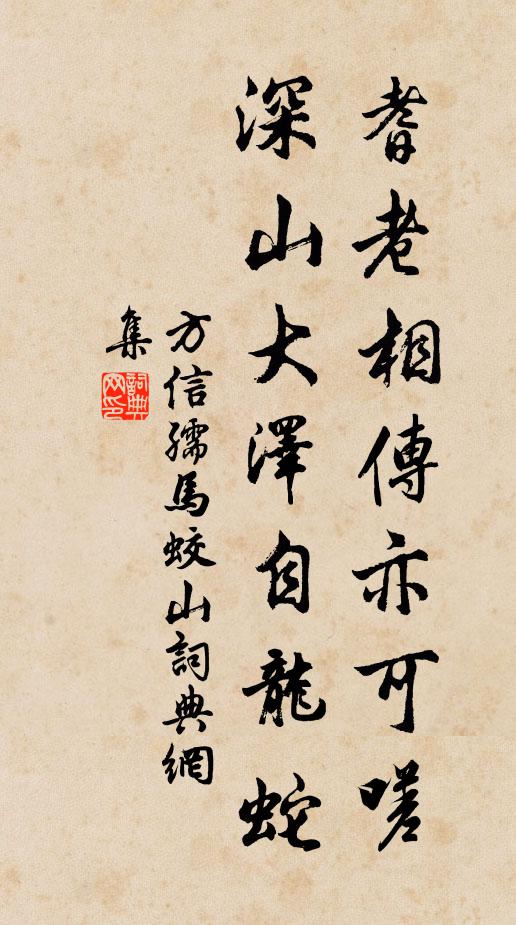 耆老相傳亦可嗟
深山大澤自龍蛇
方信孺馬蛟山詞典網
集
詞典網印